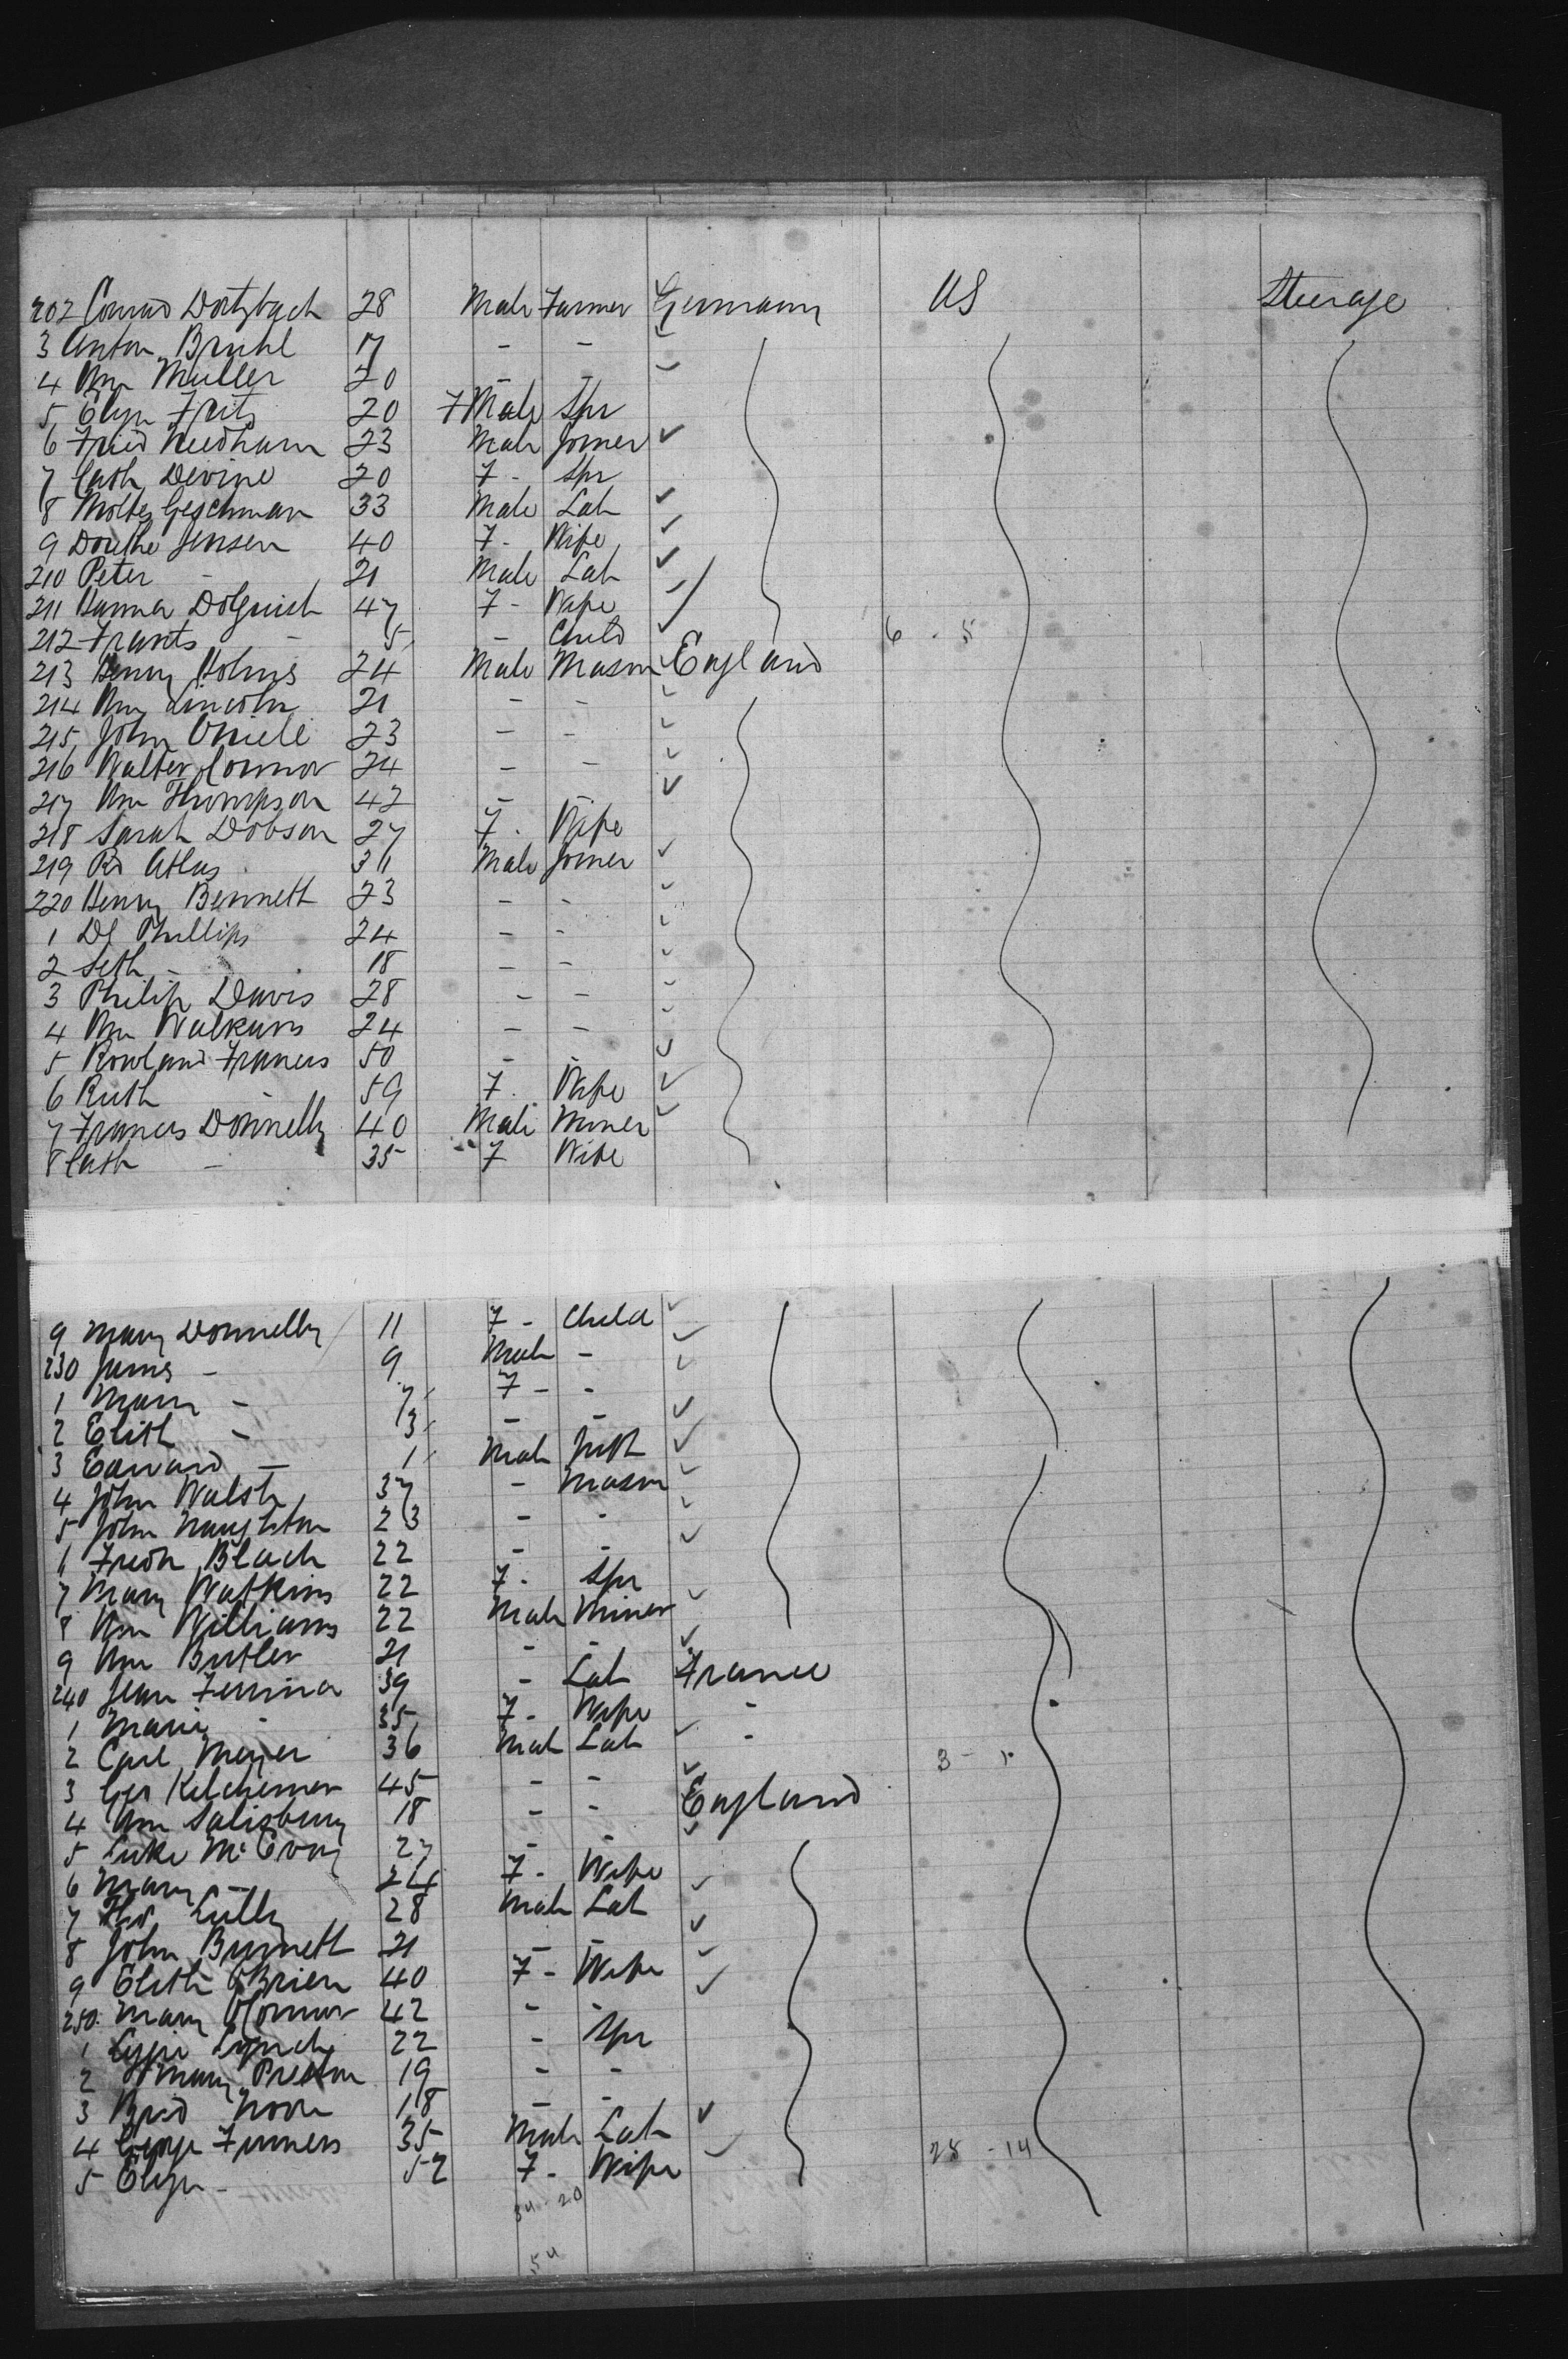 202 Conrad Dortzbach 28 Male Farmer Germany US Steerage
3 Anton Bruhl 17 - -
4 Wm Muller 20 - -
5 Eliza Fritz 20 F Male Spr
6 Fried Needham 23 Male Joiner
7 Cath Devine 20 F - Spr
8 33 Male Lab
9 Dorthe Jensen 40 F - Wife
210 Peter - 21 Male Lab
211 Hanna Dolquist 47 F - Wife
212 Frants - 5 - Child 6 - 5
213 Henry Holms 24 Male Mason England
214 Wm Lincoln 21 - -
215 John Oniele 23 - -
216 Walter Connor 24 - -
217 Wm Thompson 42 - -
218 Sarah Dobson 27 F - Wife
219 Rd Atlas 31 Male Joiner
220 Henry Bennett 23 - -
1 Dl Phillips 24 - -
2 Seth - 18 - -
3 Philip Davis 28 - -
4 Wm Walkins 24 - -
5 Rowland Francis 50 - -
6 Ruth - 59 F - Wife
7 Francis Donnelly 40 Male Miner
8 Cath - 35 F Wife
9 Mary Donnelly 11 F - Child
230 James - 9 Male -
1 Mary - 7 F - -
2 Elith - 3 - -
3 Edward - 1 Male Inft
4 John Walsh 37 - Mason
5 John Naughton 23 - -
6 Fredk Black 22 - -
7 Mary Watkins 22 F - Spr
8 Wm Williams 22 Male Miner
9 Wm Butler 21 - -
240 Jean 39 - Lab France
1 Marie - 35 F - Wife -
2 Carl Meyer 36 Male Lab -
3 Geo 45 - - 3 - 1
4 Wm Salisbury 18 - - England
5 Luke McEvoy 27 - -
6 Mary - 24 F - Wife
7 Thos Lully 28 Male Lab
8 John Burnett 21 - -
9 Elith OBrien 40 F - Wife
250 Mary OConnor 42 - -
1 Lizzie Lynch 22 - Spr
2 Mary Preston 19 - -
3 Brid Noon 18 - -
4 George 35 Male Lab
5 Eliza - 52 F - Wife 28 - 14
34 - 20
54